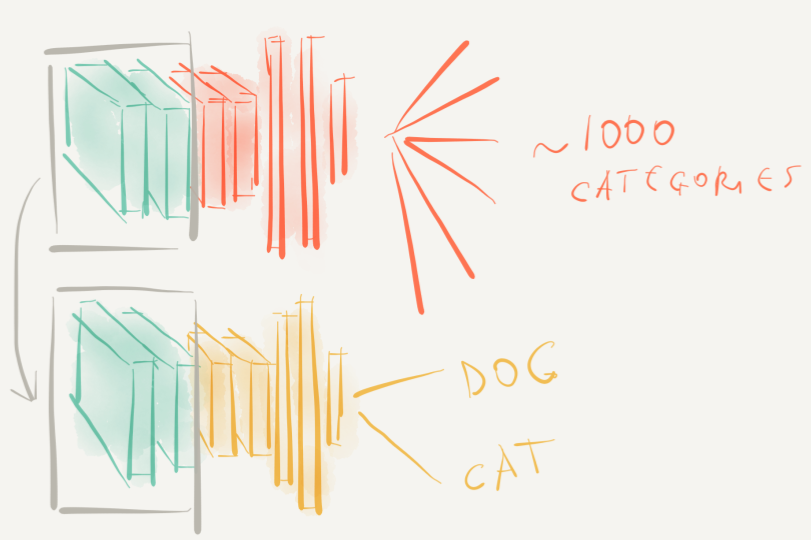 ~1000
CATEGORIES
DOG
CAT